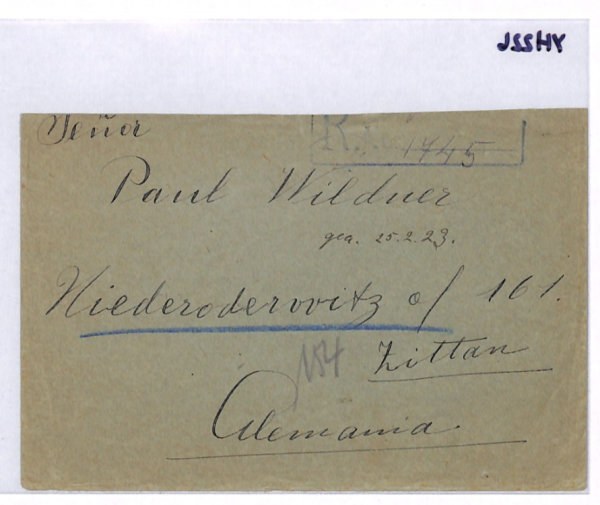 Señor
R. 1445
Paul Wildner
gea. 25.2.23.
Niederoderwitz o/ 161.
184
Zittau
Alemania.